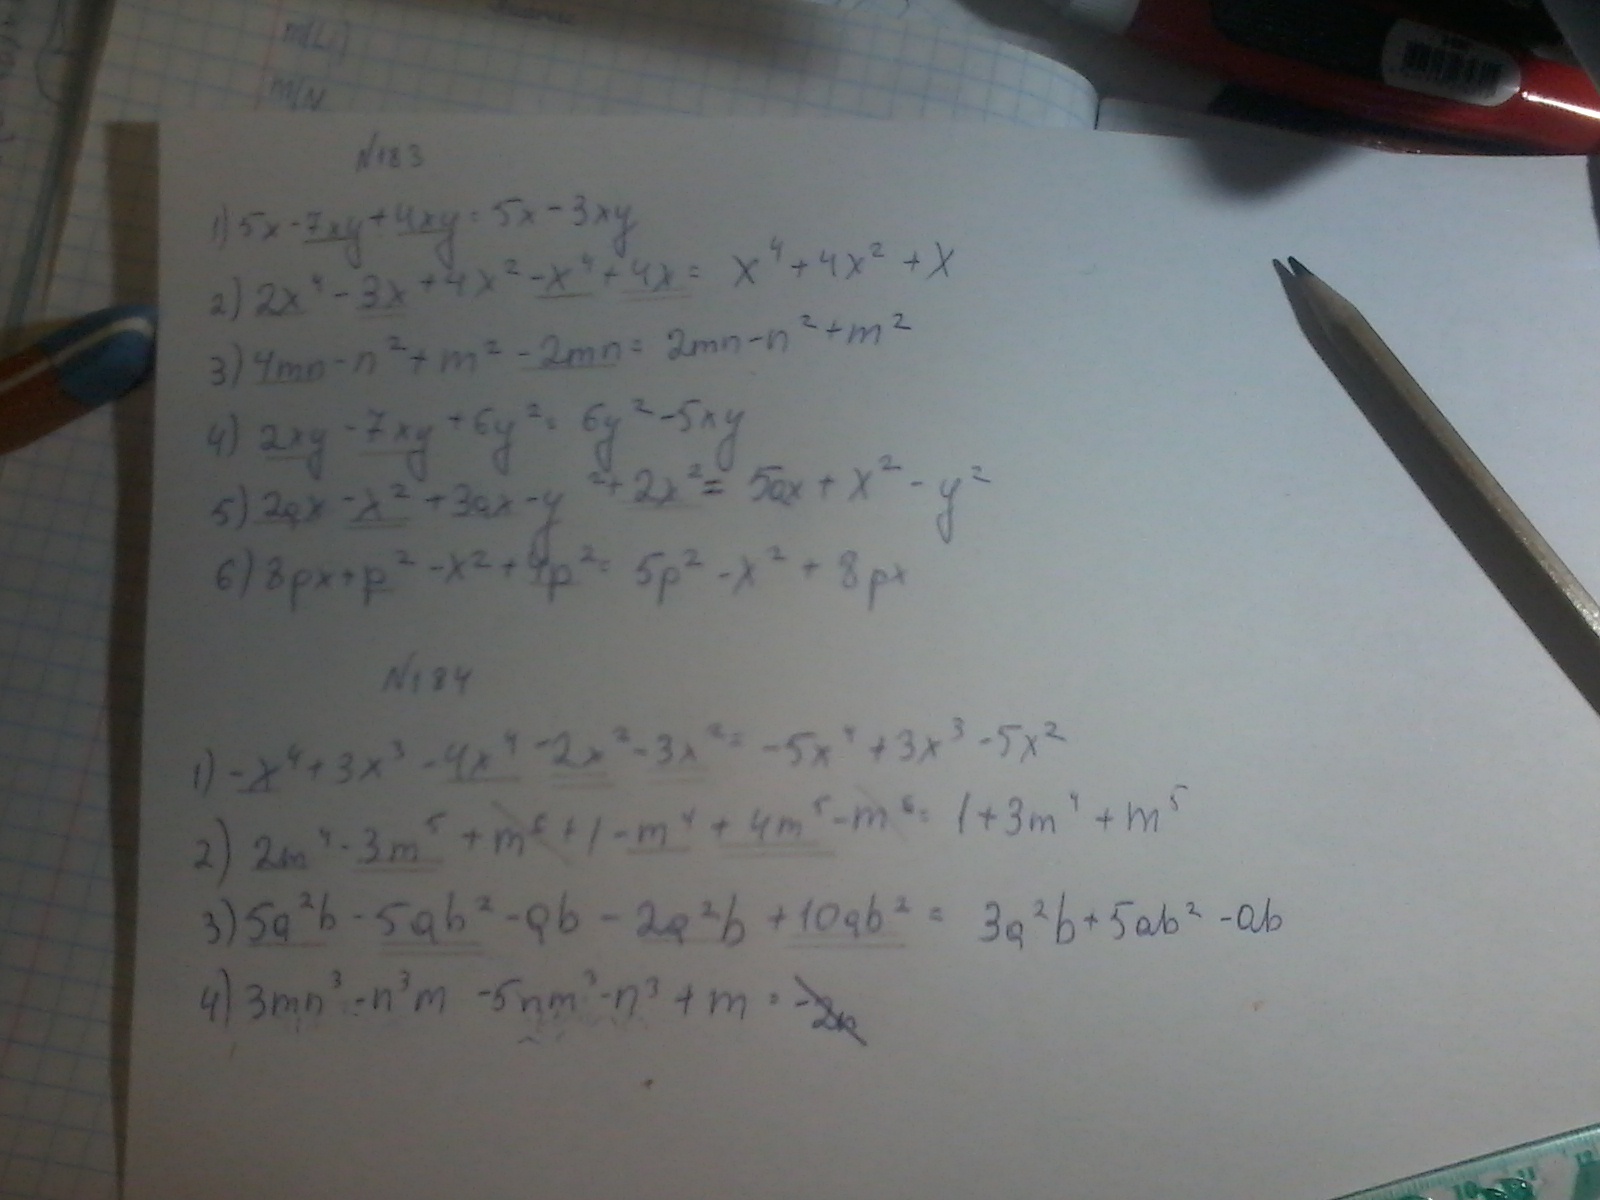 m(Li)
m(N
N183
1) 5x - 7xy + 4xy = 5x - 3xy
2) 2x⁴ - 3x + 4x² - x⁴ + 4x = x⁴ + 4x² + x
3) 4mn - n² + m² - 2mn = 2mn - n² + m²
4) 2xy - 7xy + 6y² = 6y² - 5xy
5) 2ax - x² + 3ax - y² + 2x² = 5ax + x² - y²
6) 8px + p² - x² + 4p² = 5p² - x² + 8px
N184
1) -x⁴ + 3x³ - 4x⁴ - 2x² - 3x² = -5x⁴ + 3x³ - 5x²
2) 2m⁴ - 3m⁵ + m⁶ + 1 - m⁴ + 4m⁵ - m⁶ = 1 + 3m⁴ + m⁵
3) 5a²b - 5ab² - ab - 2a²b + 10ab² = 3a²b + 5ab² - ab
4) 3mn³ - n³m - 5nm³ - n³ + m =